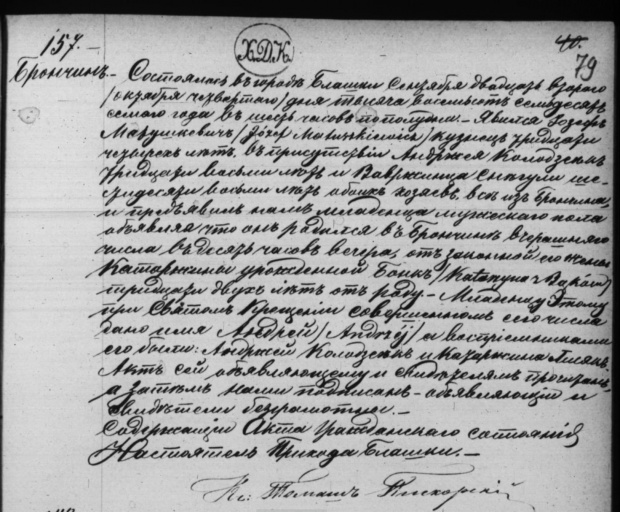 157.
Х.Д.К.
79
Брончинъ.
Состоялось въ городѣ Блашки Сентября двадцать втораго
/Октября четвертаго/ дня тысяча восемьсотъ семьдесятъ
седьмаго года въ шесть часовъ пополудни. Явился Іозефъ
Матушкевичъ /Józef Matuszkiewicz/ кузнецъ тридцати
четырехъ лѣтъ, въ присутствіи Андржея Колодзея
тридцати восьми лѣтъ и Вавржинца ше-
стидесяти восьми лѣтъ обоихъ хозяевъ, всѣ изъ Брончина
и предъявилъ намъ младенца мужескаго пола
объявляя что онъ родился въ Брончинѣ вчерашняго
числа въ десять часовъ вечера, отъ законной его жены
Катаржины урожденной
тридцати двухъ лѣтъ отъ роду. Младенцу этому
при Святомъ Крещеніи совершенномъ сего числа
дано имя Андрей /Andrzéj/ а воспріемниками
его были: Андржей и Катаржина
Актъ сей объявляющему и свидѣтелямъ прочитанъ,
а затѣмъ нами подписанъ объявляющій и
свидѣтели безграмотные.
Содержащій Акты Гражданскаго состоянія
Настоятель Прихода Блашки.
Кс: Томашъ Пекорскій